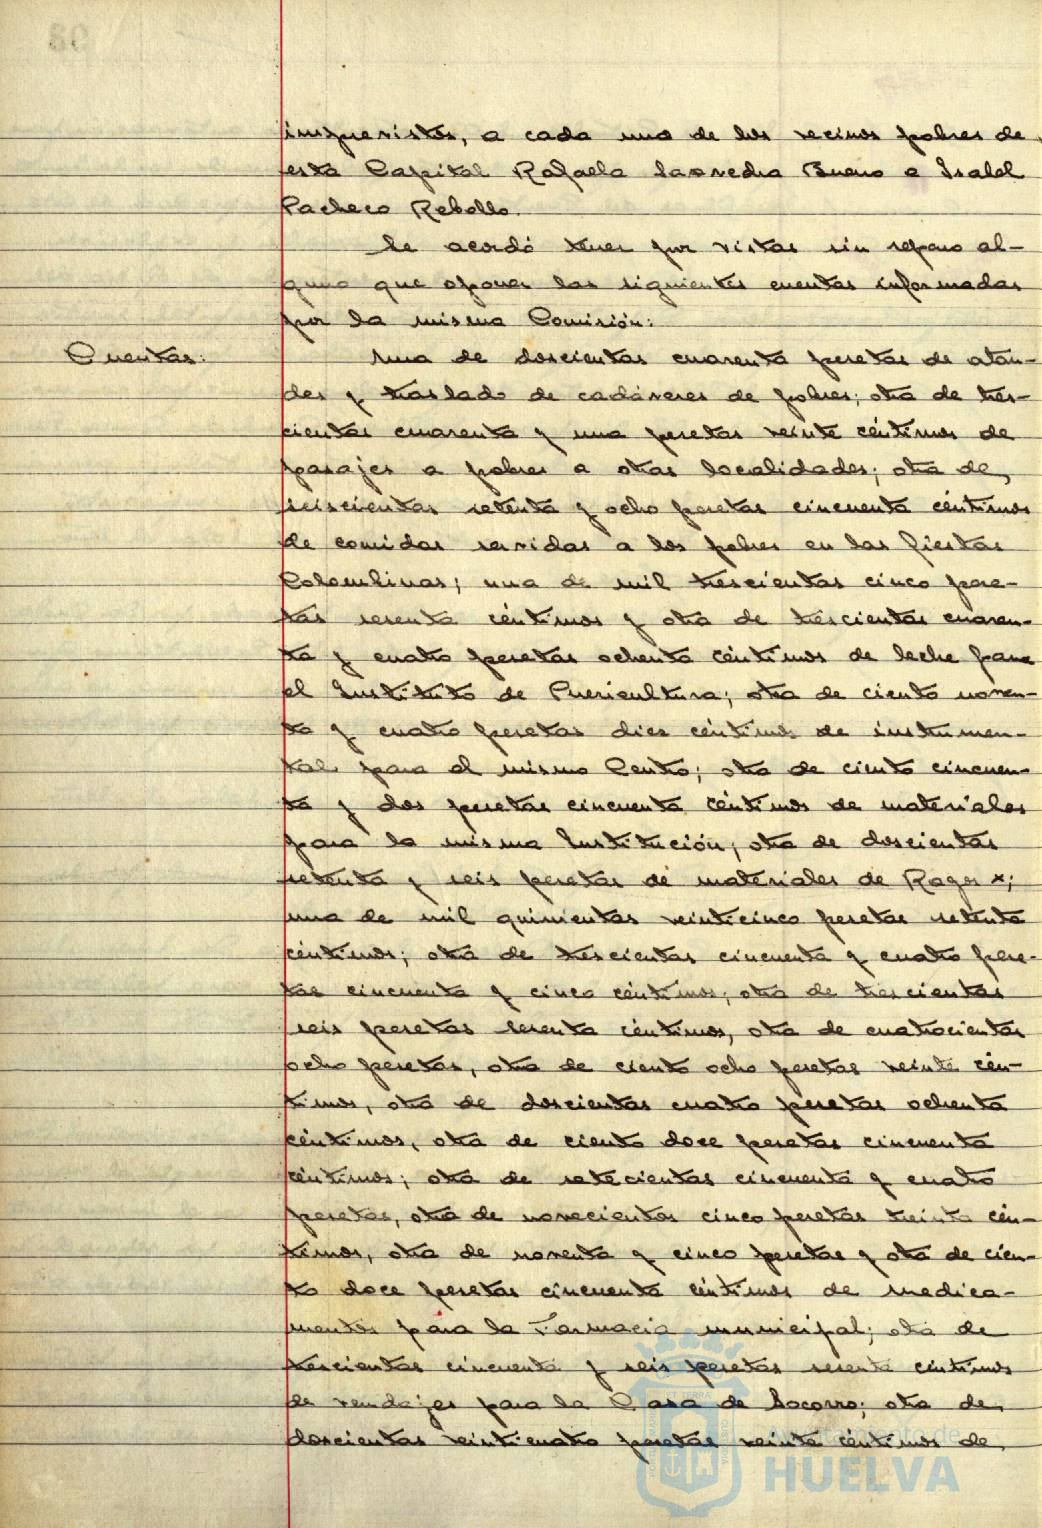 quirúrgicos, a cada uno de los vecinos pobres de
esta Capital Rafaela Saavedra Bueno e Isabel
Pacheco Rebollo.
Se acordó tener por vistas sin reparo al-
guno que oponer las siguientes cuentas informadas
por la misma Comisión:
Cuentas:
Una de doscientas cuarenta pesetas de ataú-
des y traslado de cadáveres de pobres; otra de tres-
cientas cuarenta y una pesetas veinte céntimos de
pasajes a pobres a otras localidades; otra de
seiscientas setenta y ocho pesetas cincuenta céntimos
de comidas servidas a los pobres en las fiestas
Colombinas; una de mil trescientas cinco pese-
tas sesenta céntimos y otra de trescientas cuaren-
ta y cuatro pesetas ochenta céntimos de leche para
el Instituto de Puericultura; otra de ciento noven-
ta y cuatro pesetas diez céntimos de instrumen-
tal para el mismo Centro; otra de ciento cincuen-
ta y dos pesetas cincuenta céntimos de materiales
para la misma Institución; otra de doscientas
setenta y seis pesetas de materiales de Rayos X;
una de mil quinientas veinticinco pesetas setenta
céntimos; otra de trescientas cincuenta y cuatro pese-
tas cincuenta y cinco céntimos; otra de trescientas
seis pesetas sesenta céntimos, otra de cuatrocientas
ocho pesetas, otra de ciento ocho pesetas veinte cén-
timos, otra de doscientas cuatro pesetas ochenta
céntimos, otra de ciento doce pesetas cincuenta
céntimos; otra de setecientas cincuenta y cuatro
pesetas, otra de novecientas cinco pesetas treinta cén-
timos, otra de noventa y cinco pesetas y otra de cien-
to doce pesetas cincuenta céntimos de medica-
mentos para la Farmacia municipal; otra de
trescientas cincuenta y seis pesetas sesenta céntimos
de vendajes para la Casa de Socorro; otra de
doscientas veinticuatro pesetas veinte céntimos de
Ayuntamiento de
HUELVA